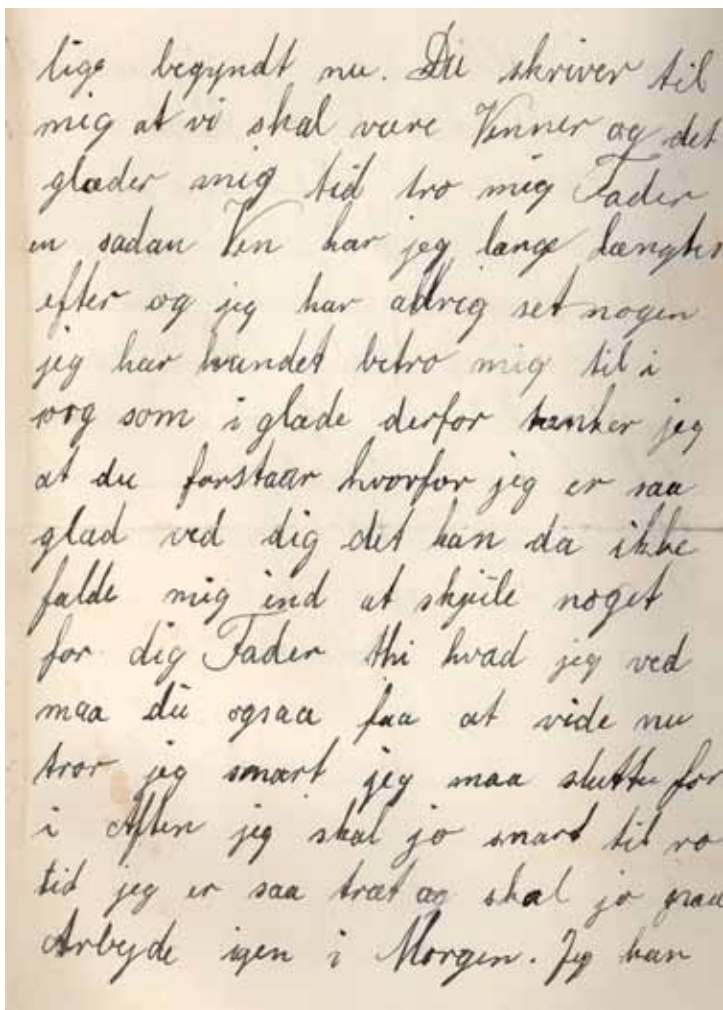 lige begyndt nu. Du skriver til
mig at vi skal være Venner og det
glæder mig tid tro mig Fader
en sadan Ven har jeg længe længter
efter og jeg har aldrig set nogen
jeg har kundet betro mig til i
sorg som i glæde derfor tænker jeg
at du forstaar hvorfor jeg er saa
glad ved dig det kan da ikke
falde mig ind at skjule noget
for dig Fader thi hvad jeg ved
maa du ogsaa faa at vide nu
tror jeg snart jeg maa slutte for
i Aften jeg skal jo snart til ro
tid jeg er saa træt og skal jo paa
Arbejde igen i Morgen. Jeg kan